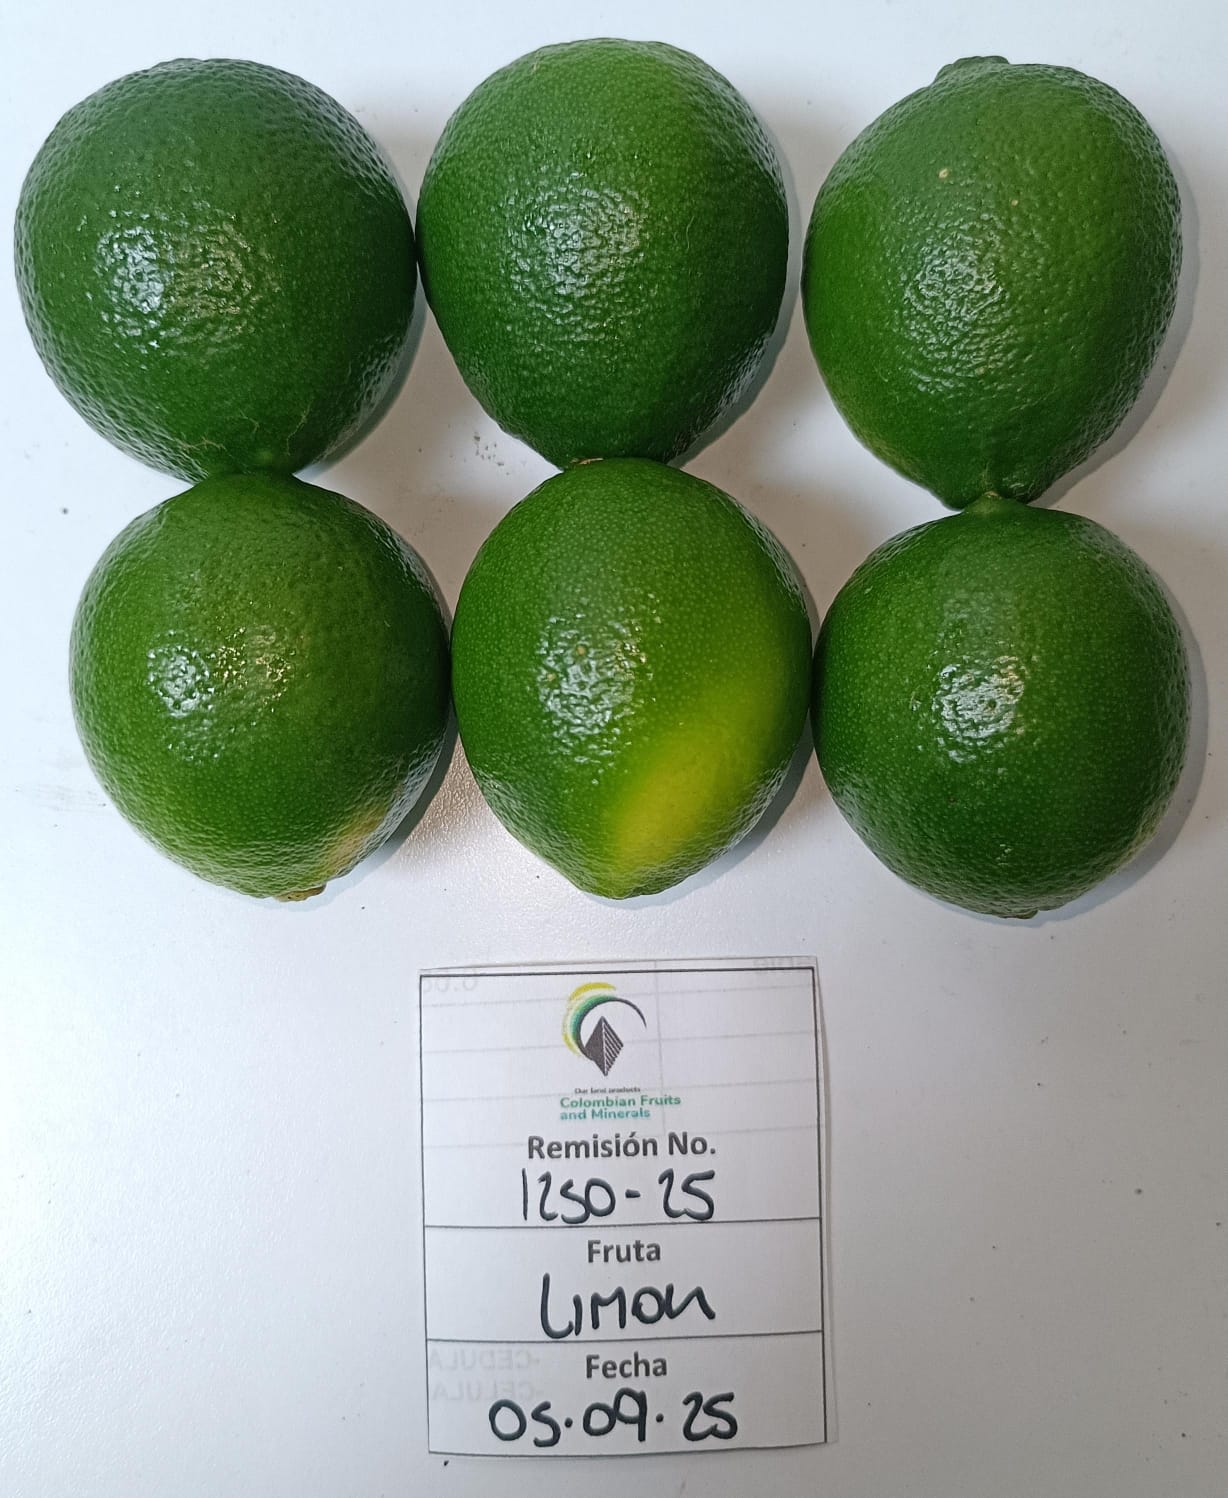 Our best products
Colombian Fruits
and Minerals
Remisión No.
1250-25
Fruta
LIMON
Fecha
05.09.25
-CEDULA
-CELULA